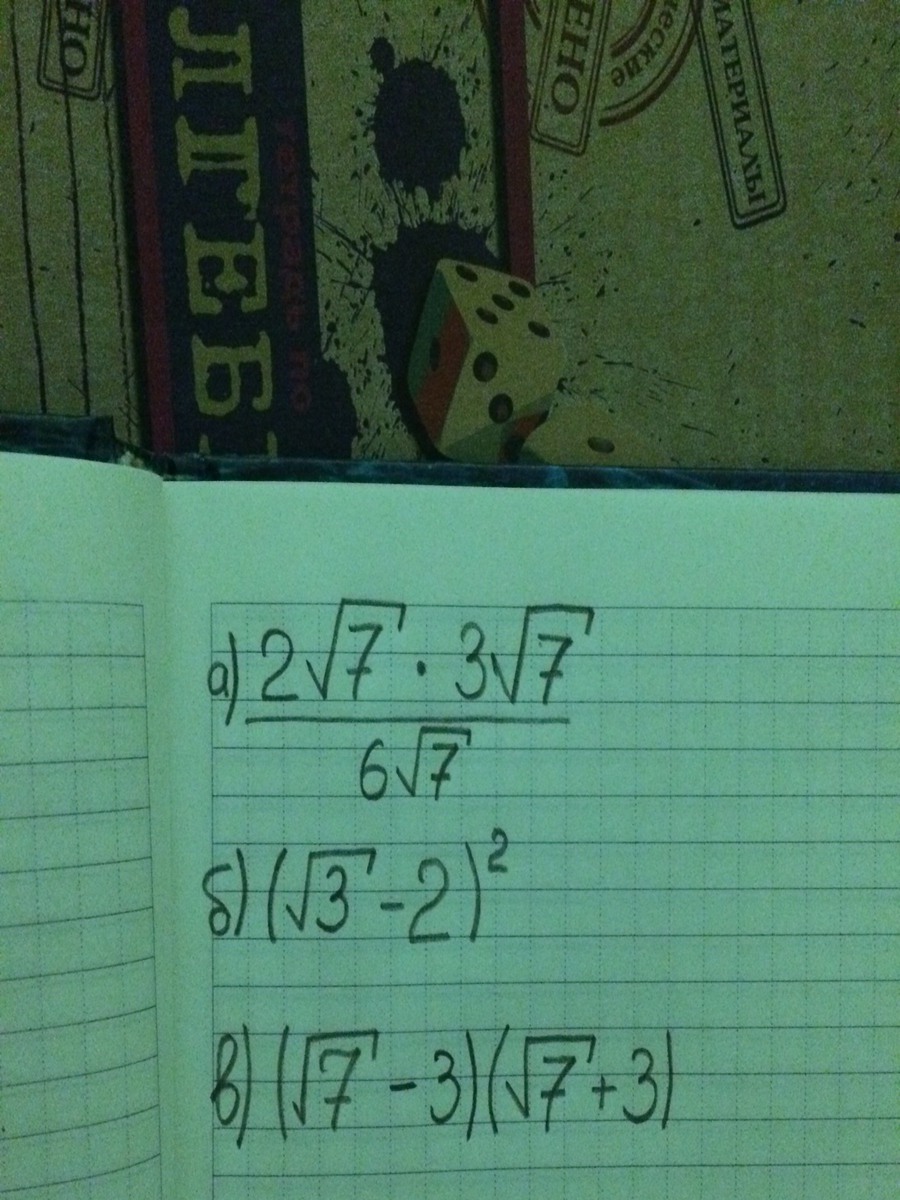 ЕНО
НО
ческие
МАТЕРИАЛЫ
ЛГЕБ
тетрадь по
а) \frac{2\sqrt{7} \cdot 3\sqrt{7}}{6\sqrt{7}}
б) (\sqrt{3} - 2)^2
в) (\sqrt{7} - 3)(\sqrt{7} + 3)